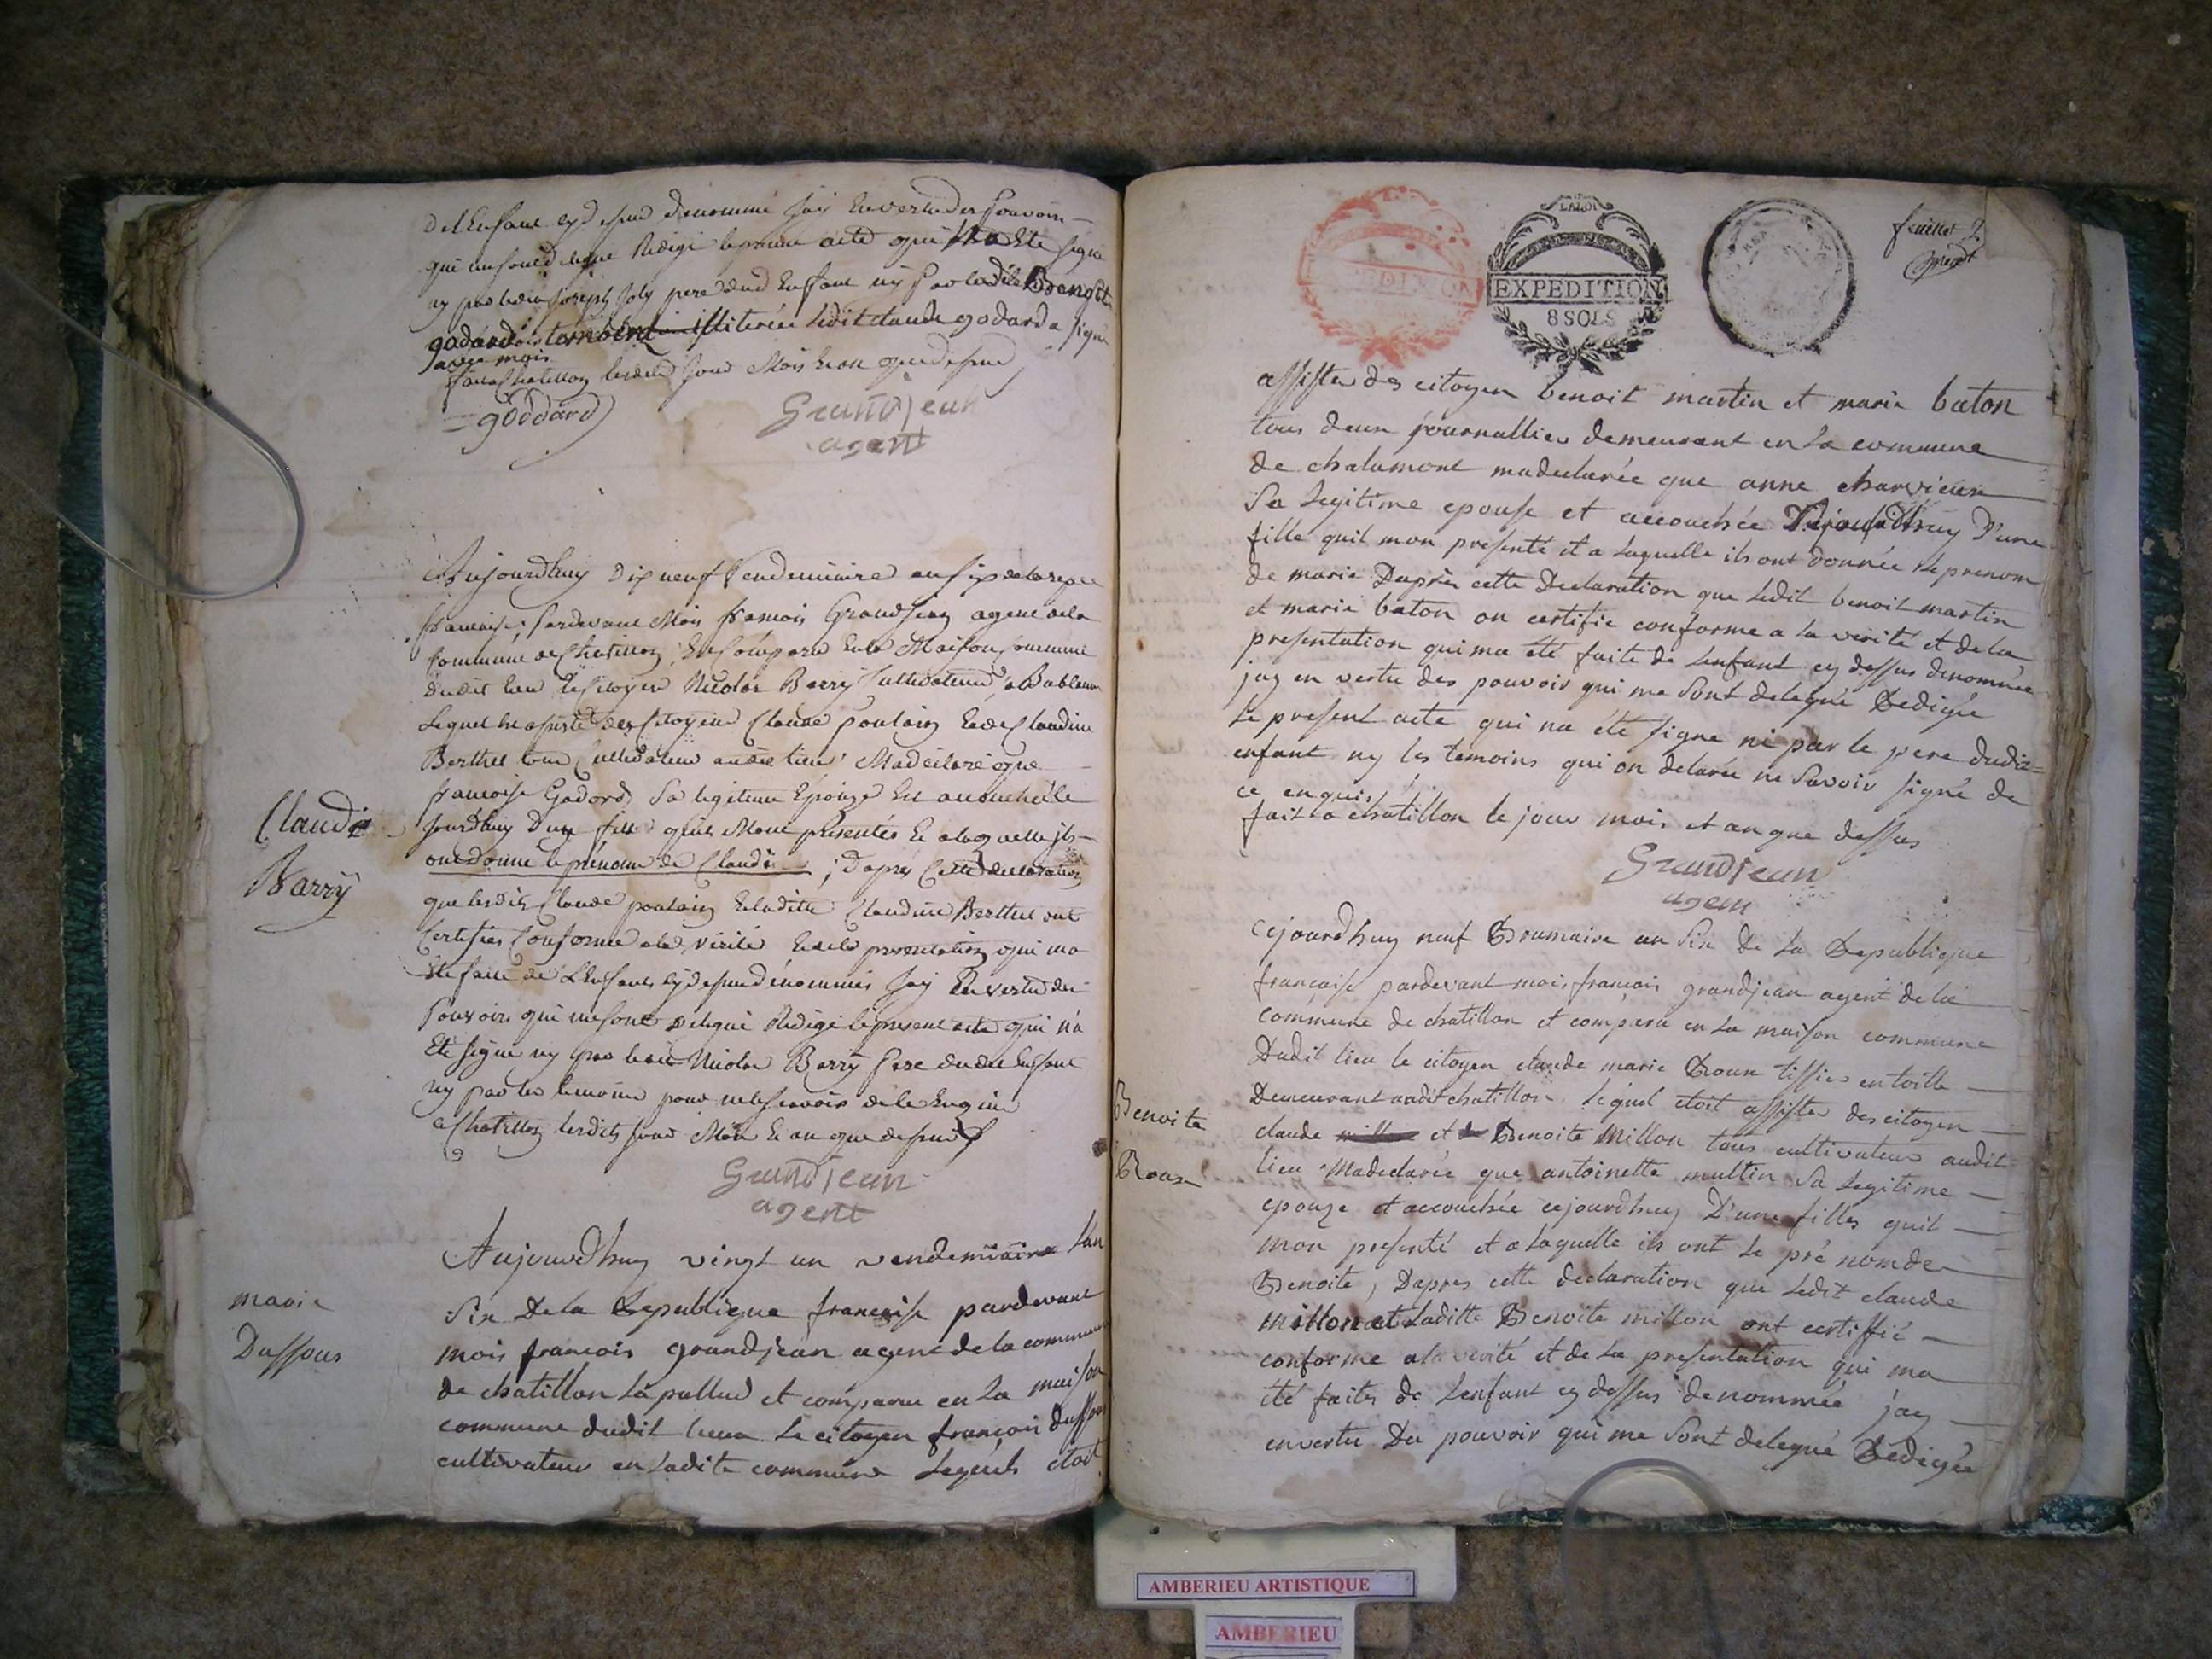 De l'Enfant cy dessus denommé Jay En vertu des Pouvoirs
qui me sont delegué Redigé le present acte qui na Ete signé
ny par ledit Joseph Joly pere dud Enfant ny Par ladite Benoite
godard temoins illiterée Ledit Claude godard a signé
avec mois
fait a Chatillon lesdits Jour Mois Et an que dessus
goddard
Grandjean
agent
Aujourdhuy Dix neuf Vendemiaire an six de la repce
francaise; Pardevant Mois francois Grandjean agent de la
Commune de Chatillon, Est Comparu En la Maison Commune
dudit lieu Le Citoyen Nicolas Barry Cultivateur a
Lequel Et assisté des Citoyens Claude poulain Et de Claudine
Berthet tous Cultivateurs audit lieu Ma declaré que
francoise Godard Sa legitime Epouze Est accouchée le
Jourdhuy D'une fille quils Mont presentée Et a laquelle ils
ont donné le prénom de Claudie; D'après Cette declaration
que lesdits Claude poulain Et ladite Claudine Berthet ont
Certifiés Conforme a la Vérité Et de la presentation qui ma
Ete faite de L'Enfant cy dessus dénommés Jay En vertu des
Pouvoirs qui me sont Delegué Redigé le present acte qui n'a
Eté signé ny par ledit Nicolas Barry Pere dudit Enfant
ny par les temoins pour ne le scavoir de ce Enquis
a Chatillon lesdits Jour Mois Et an que dessus
Grandjean
agent
Claudie
Barry
Aujourdhuy vingt un vendemiaire L'an
Six De la Republique francaise pardevant
mois francois grandjean agent de la commune
de chatillon La pallud et comparu en La maison
commune dudit lieu Le citoyen francois dussous
cultivateur en Ladite commune Lequels etoit
marie
Dussous
EXPEDITION
8 SOLS
feuillet 2
assister des citoyen benoit martin et marie baton
tous deux journallier demeurant en La commune
de chalamont madeclarée que anne charvieux
Sa Legitime epouse et accouchée Cejourdhuy D'une
fille quil mon presenté et a Laquelle ils ont donnée le prenom
de marie Daprès cette Declaration que Ledit benoit martin
et marie baton on certifie conforme a la verité et de la
presentation qui ma été faite de Lenfant cy dessus denommée
jay en vertu des pouvoir qui me Sont delegué Redigée
Le present acte qui na été signé ni par le pere dudit
enfant ny les temoins qui on delarée ne Savoir signé de
ce enquis
fait a chatillon le jour mois et an que dessus
Grandjean
agent
Cejourdhuy neuf Brumaire an Six De La Republique
francaise pardevant mois francois grandjean agent de la
commune de chatillon et comparu en La maison commune
Dudit lieu le citoyen claude marie Roux tissier en toille
Demeurant audit chatillon Lequel etoit assister des citoyen
claude et Benoite Millon tous cultivateur audit
lieu Madeclarée que antoinette multin Sa Legitime
epouze et accouchée cejourdhuy D'une filles quil
mon presenté et a Laquelle ils ont Le pré nom de
Benoite, Dapres cette declaration que Ledit claude
Millon et Laditte Benoite millon ont certiffié
conforme a la verité et de La presentation qui ma
été faites de Lenfant cy dessus denommée jay
en vertu Du pouvoir qui me Sont delegué Redigée
Benoite
Roux
AMBERIEU ARTISTIQUE
AMBERIEU